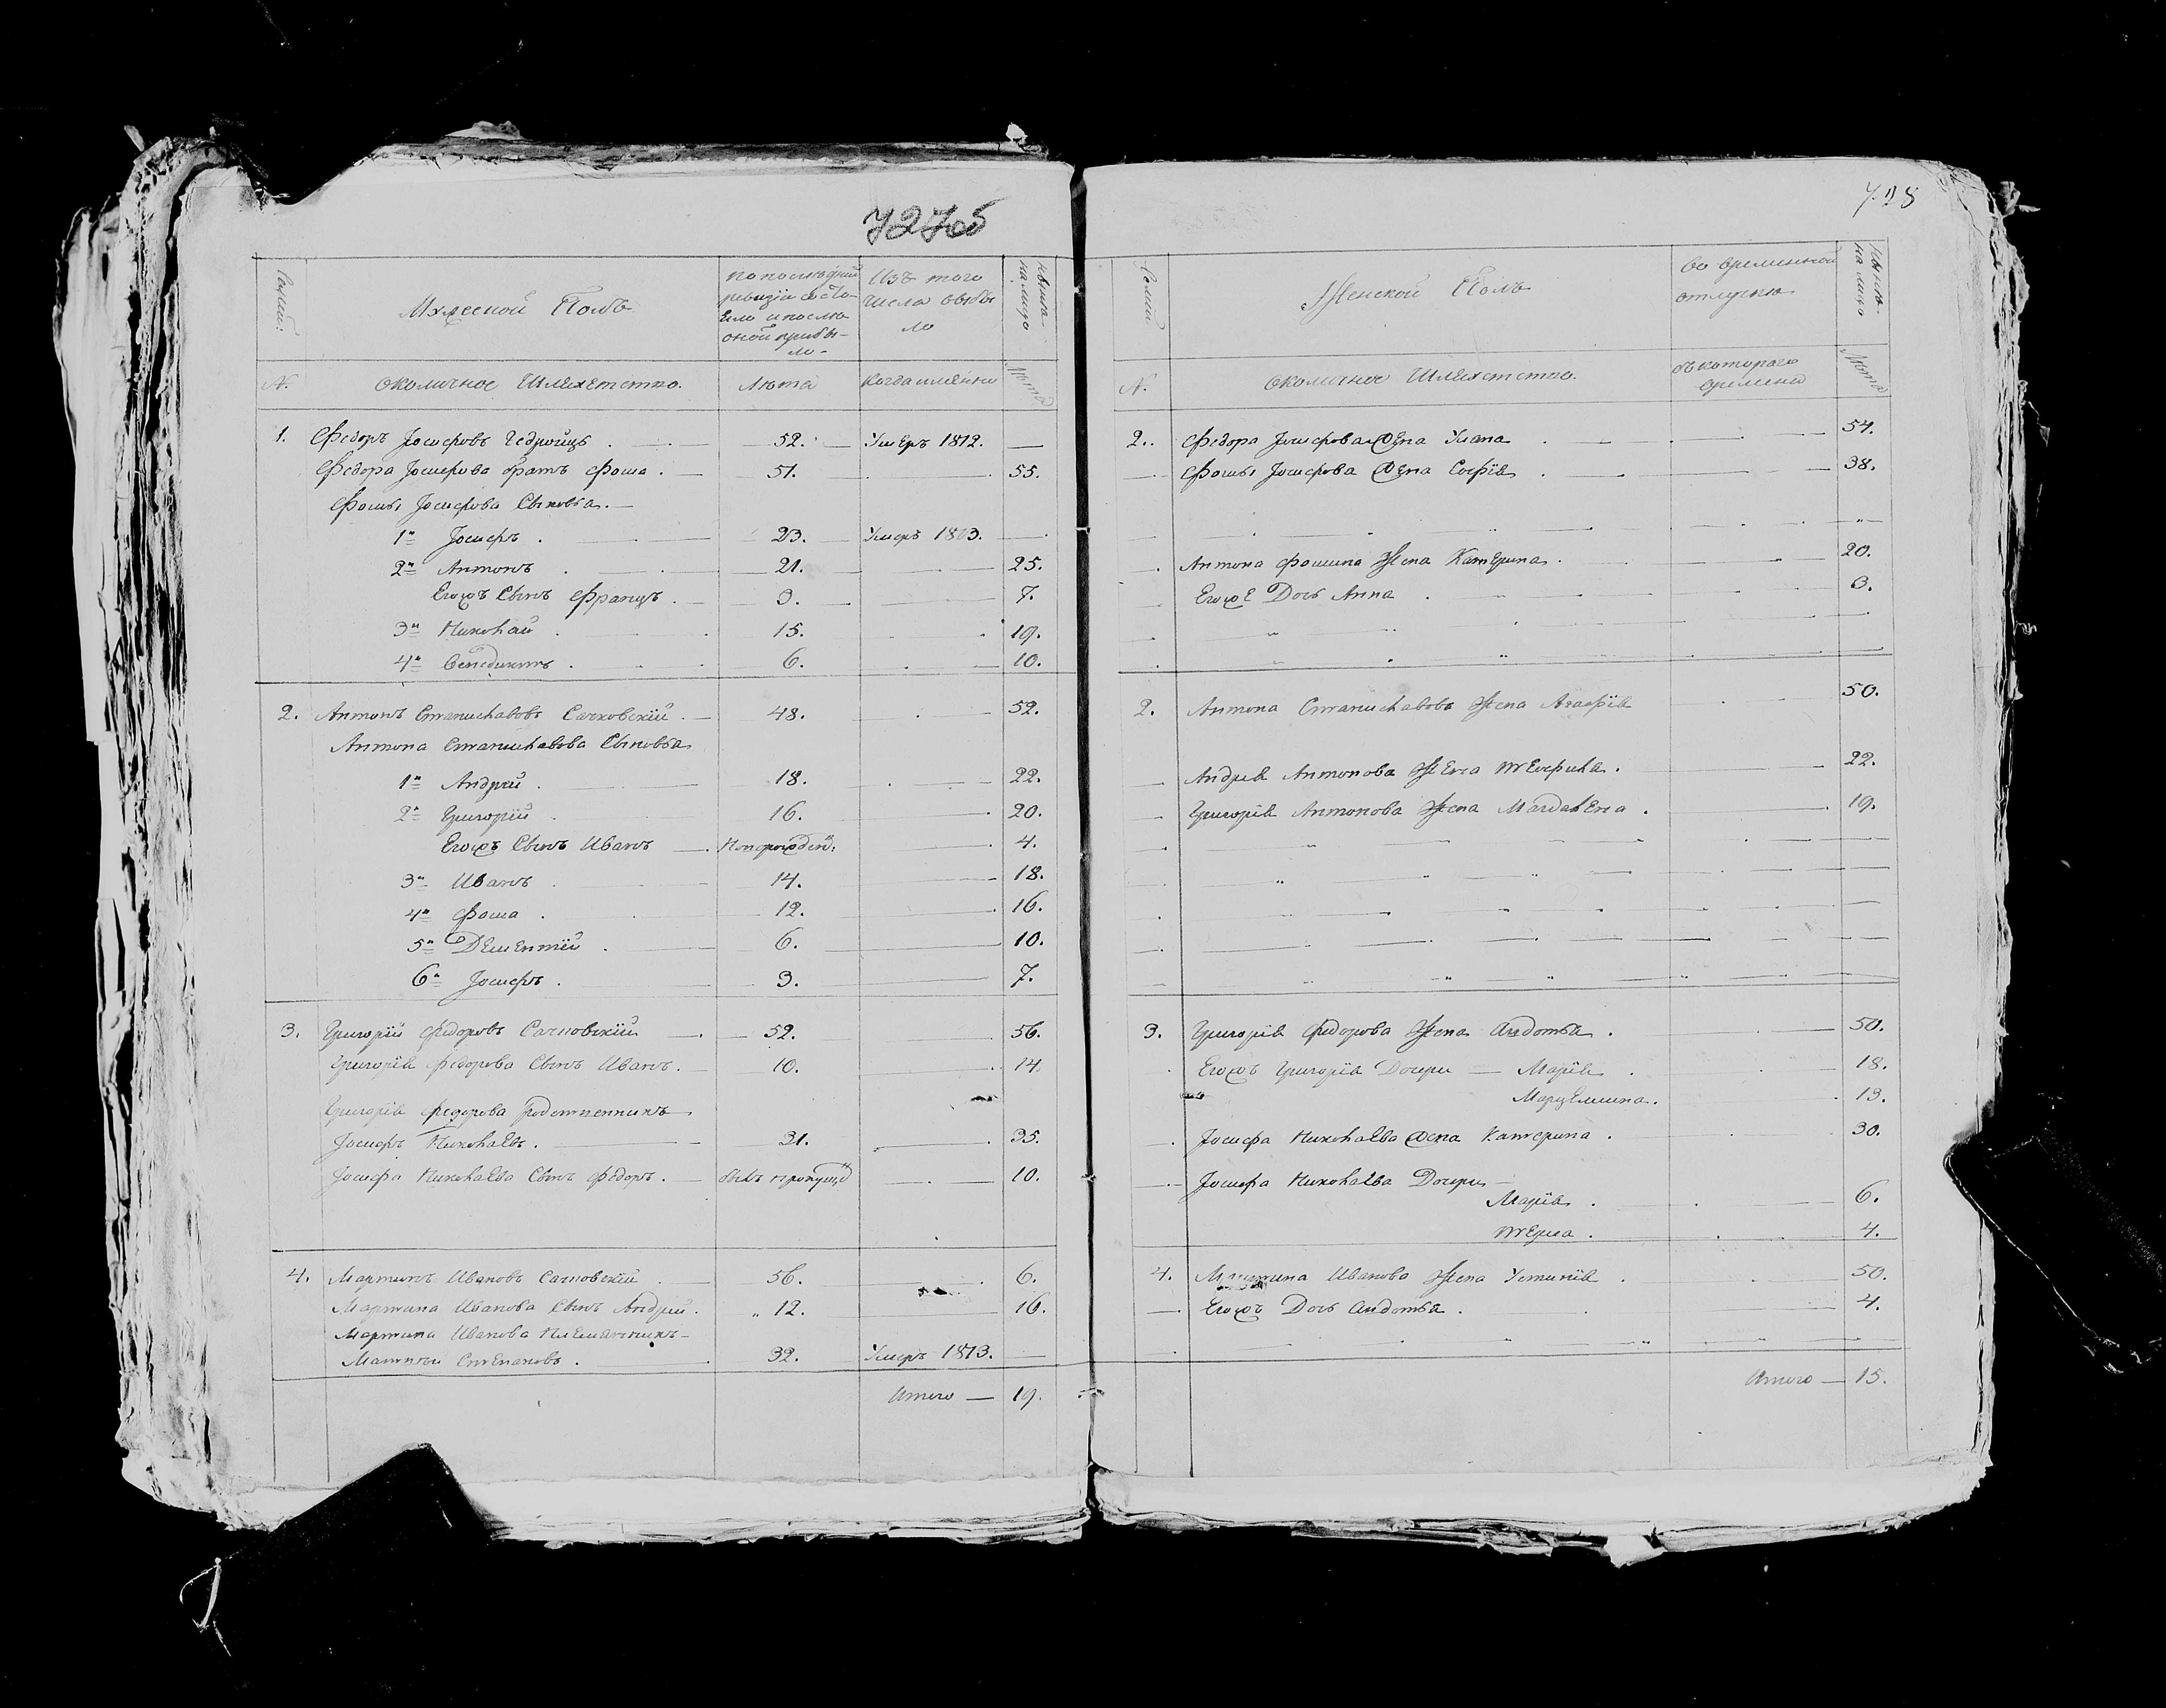 727об
728
Семьи.
Мужеской Полъ
по последней ревизiи состояло и после оной прибыло
Изъ того числа выбыло
ныне на лицо
№.
околичное Шляхетство.
Лета
когда имянно
Лета
1. Федоръ Іосифовъ 52. Умеръ 1812. —
Федора Іосифова братъ Фома. 51. 55.
Фомы Іосифова Сыновья.
1й Іосифъ. 23. Умеръ 1813.
2й Антонъ 21. 25.
Егожъ Сынъ Францъ. 3. 7.
3й Николай 15. 19.
4й Бенедиктъ. 6. 10.
2. Антонъ Станиславовъ Сачковскій. 48. 52.
Антона Станиславова Сыновья
1й Андрей. 18. 22.
2й Григорій 16. 20.
Егожъ Сынъ Иванъ — Новорожден: 4.
3й Иванъ 14. 18.
4й Фома. 12. 16.
5й Дементій. 6. 10.
6й Іосифъ. 3. 7.
3. Григорій Федоровъ Сачковскій 52. 56.
Григорія Федорова Сынъ Иванъ. 10. 14.
Григорія Федорова родственникъ
Іосифъ Николаевъ. 31. 35.
Іосифа Николаева Сынъ Федоръ. былъ пропущ. 10.
4. Мартинъ Ивановъ Сачковскій 56. 6.
Мартина Иванова Сынъ Андрей. 12. 16.
Мартина Иванова племянникъ
Матвей Степановъ. 32. Умеръ 1813. —
Итого — 19.
Семьи
Женской Полъ
во временной отлучке
ныне на лицо
№.
околичное Шляхетство.
съ котораго времени
Лета
2. Федора Іосифова жена Уляна 54.
Фомы Іосифова жена Софія 38.
Антона Фомина Жена Катерина. 20.
Егоже Дочь Анна 3.
2. Антона Станиславова Жена Агафія 50.
Андрея Антонова Жена Текля. 22.
Григорія Антонова Жена Магдалена. 19.
3. Григорія Федорова Жена Авдотья. 50.
Егожъ Григорія Дочери — Марія 18.
Марцеллина. 13.
Іосифа Николаева жена Катерина. 30.
Іосифа Николаева Дочери
Марія. 6.
4.
4. Мартина Иванова Жена Устинія 50.
Егожъ Дочь Авдотья. 4.
Итого — 15.